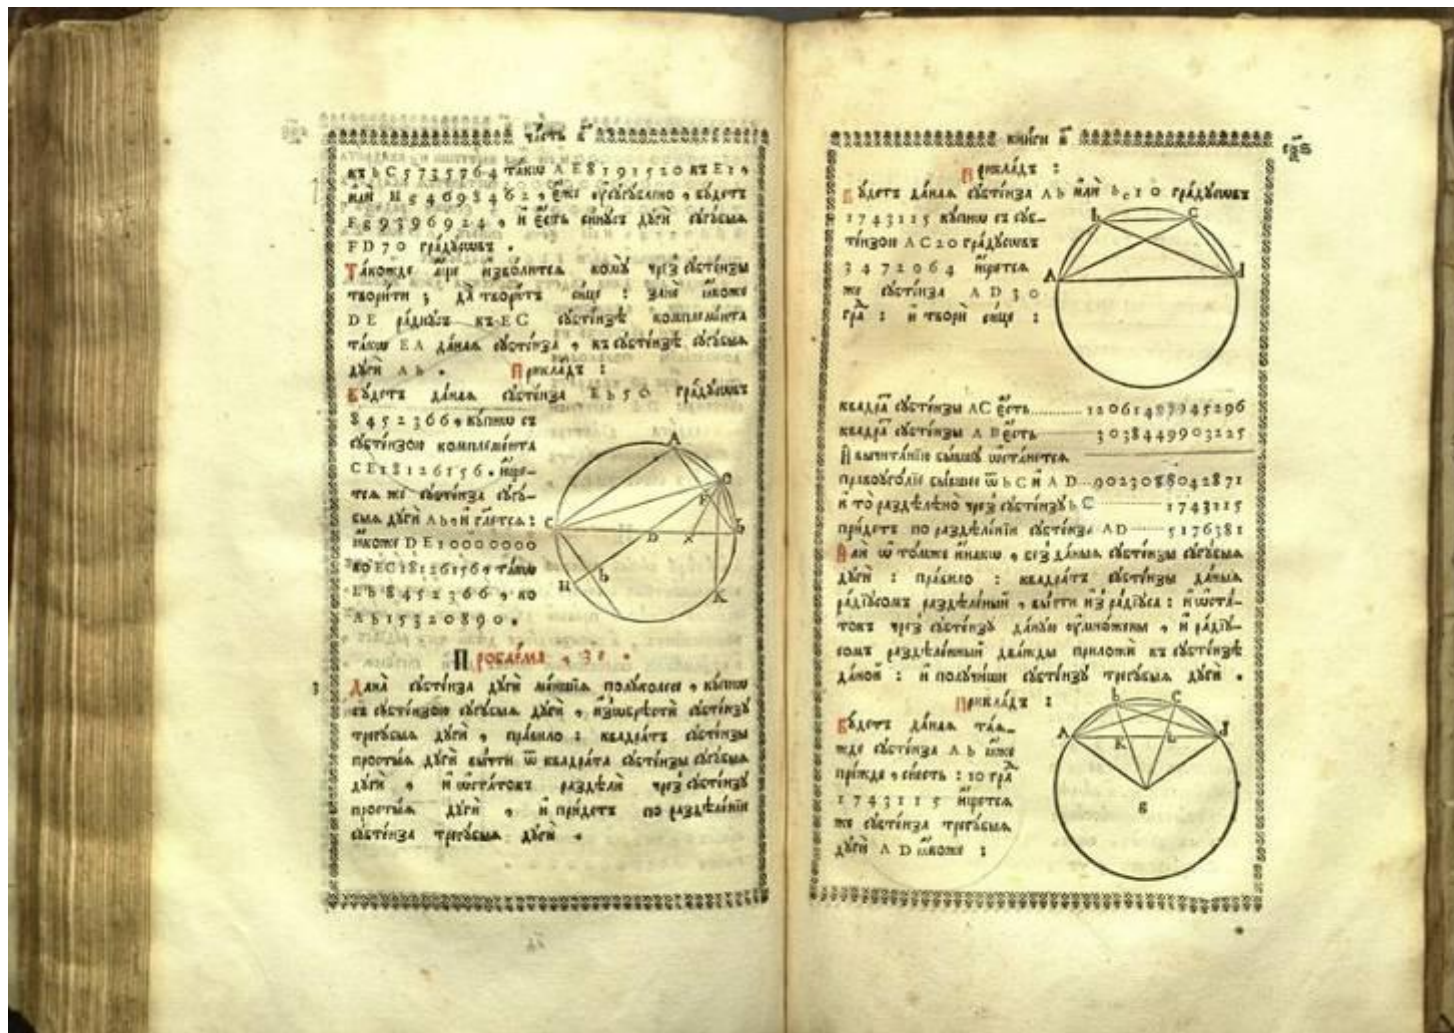 часть в҃
къ bC 5735764 такѡ AE 8191520 къ EI ,
или H 5469846 2 , єже ѹсугублено , будетъ
Fg 9396924 , и єсть сінусъ дуги сугубыѧ
FD 70 градусѡвъ .
Такожде аще изволитсѧ кому чрез̾ субтензы
творити ; да творитъ сице : зане ꙗкоже
DE радїусъ къ EC субтензѣ комплемента
такѡ EA данаѧ субтенза , къ субтензѣ сугубыѧ
дуги Ab . Прикладъ :
Будетъ данаѧ субтенза Eb 56 градусѡвъ
8452366 , купнѡ съ
субтензою комплемента
CE 18126156 . ищет-
сѧ же субтенза сугу-
быѧ дуги Ab , и глетсѧ :
ꙗкоже DE 10000000
ко EC 18126156 , такѡ
Eb 8452366 , ко
Ab 15320890 .
Проблема , 3 .
3 Дана субтенза дуги меншїѧ полуколесе , купнѡ
съ субтензою сугубыѧ дуги , изѡбрѣсти субтензу
трегубыѧ дуги , правило : квадратъ субтензы
простыѧ дуги вычти ѿ квадрата субтензы сугубыѧ
дуги , и ѡстатокъ раздѣли чрез̾ субтензу
простыѧ дуги , и прїидетъ по раздѣленїи
субтенза трегубыѧ дуги .
A
C
D
K
H
книги в҃
Прикладъ :
Будетъ данаѧ субтенза Ab или bc 10 градусѡвъ
1743115 купнѡ съ суб-
тензою AC 20 градусѡвъ
3472964 ищетсѧ
же субтенза AD 30
гра : и твори сице :
b C
A
квадра субтензы AC єсть 12061487945296
квадра субтензы AB єсть 3038449903225
И вычитанїю бывшу ѡстанетсѧ
правоуголїе бывшее ѿ bC и AD 9023088042871
и то раздѣлено чрез̾ субтензу bC 1743115
прїидетъ по раздѣленїи субтенза AD 5176381
Или ѿ тогѡже инакѡ , без̾ даныѧ субтензы сугубыѧ
дуги : правило : квадратъ субтензы даныѧ
радїусомъ раздѣленый , вычти из̾ радїуса : и ѡста-
токъ чрез̾ субтензу даную ѹмноженый , и радїу-
сомъ раздѣленный дважды приложи къ субтензѣ
даной : и получиши субтензу трегубыѧ дуги .
Прикладъ :
Будетъ данаѧ таѧ-
жде субтенза Ab ꙗже
прежде , сиесть : 10 гра
1743115 ищетсѧ
же субтенза трегубыѧ
дуги AD ꙗкоже :
b C
A K L